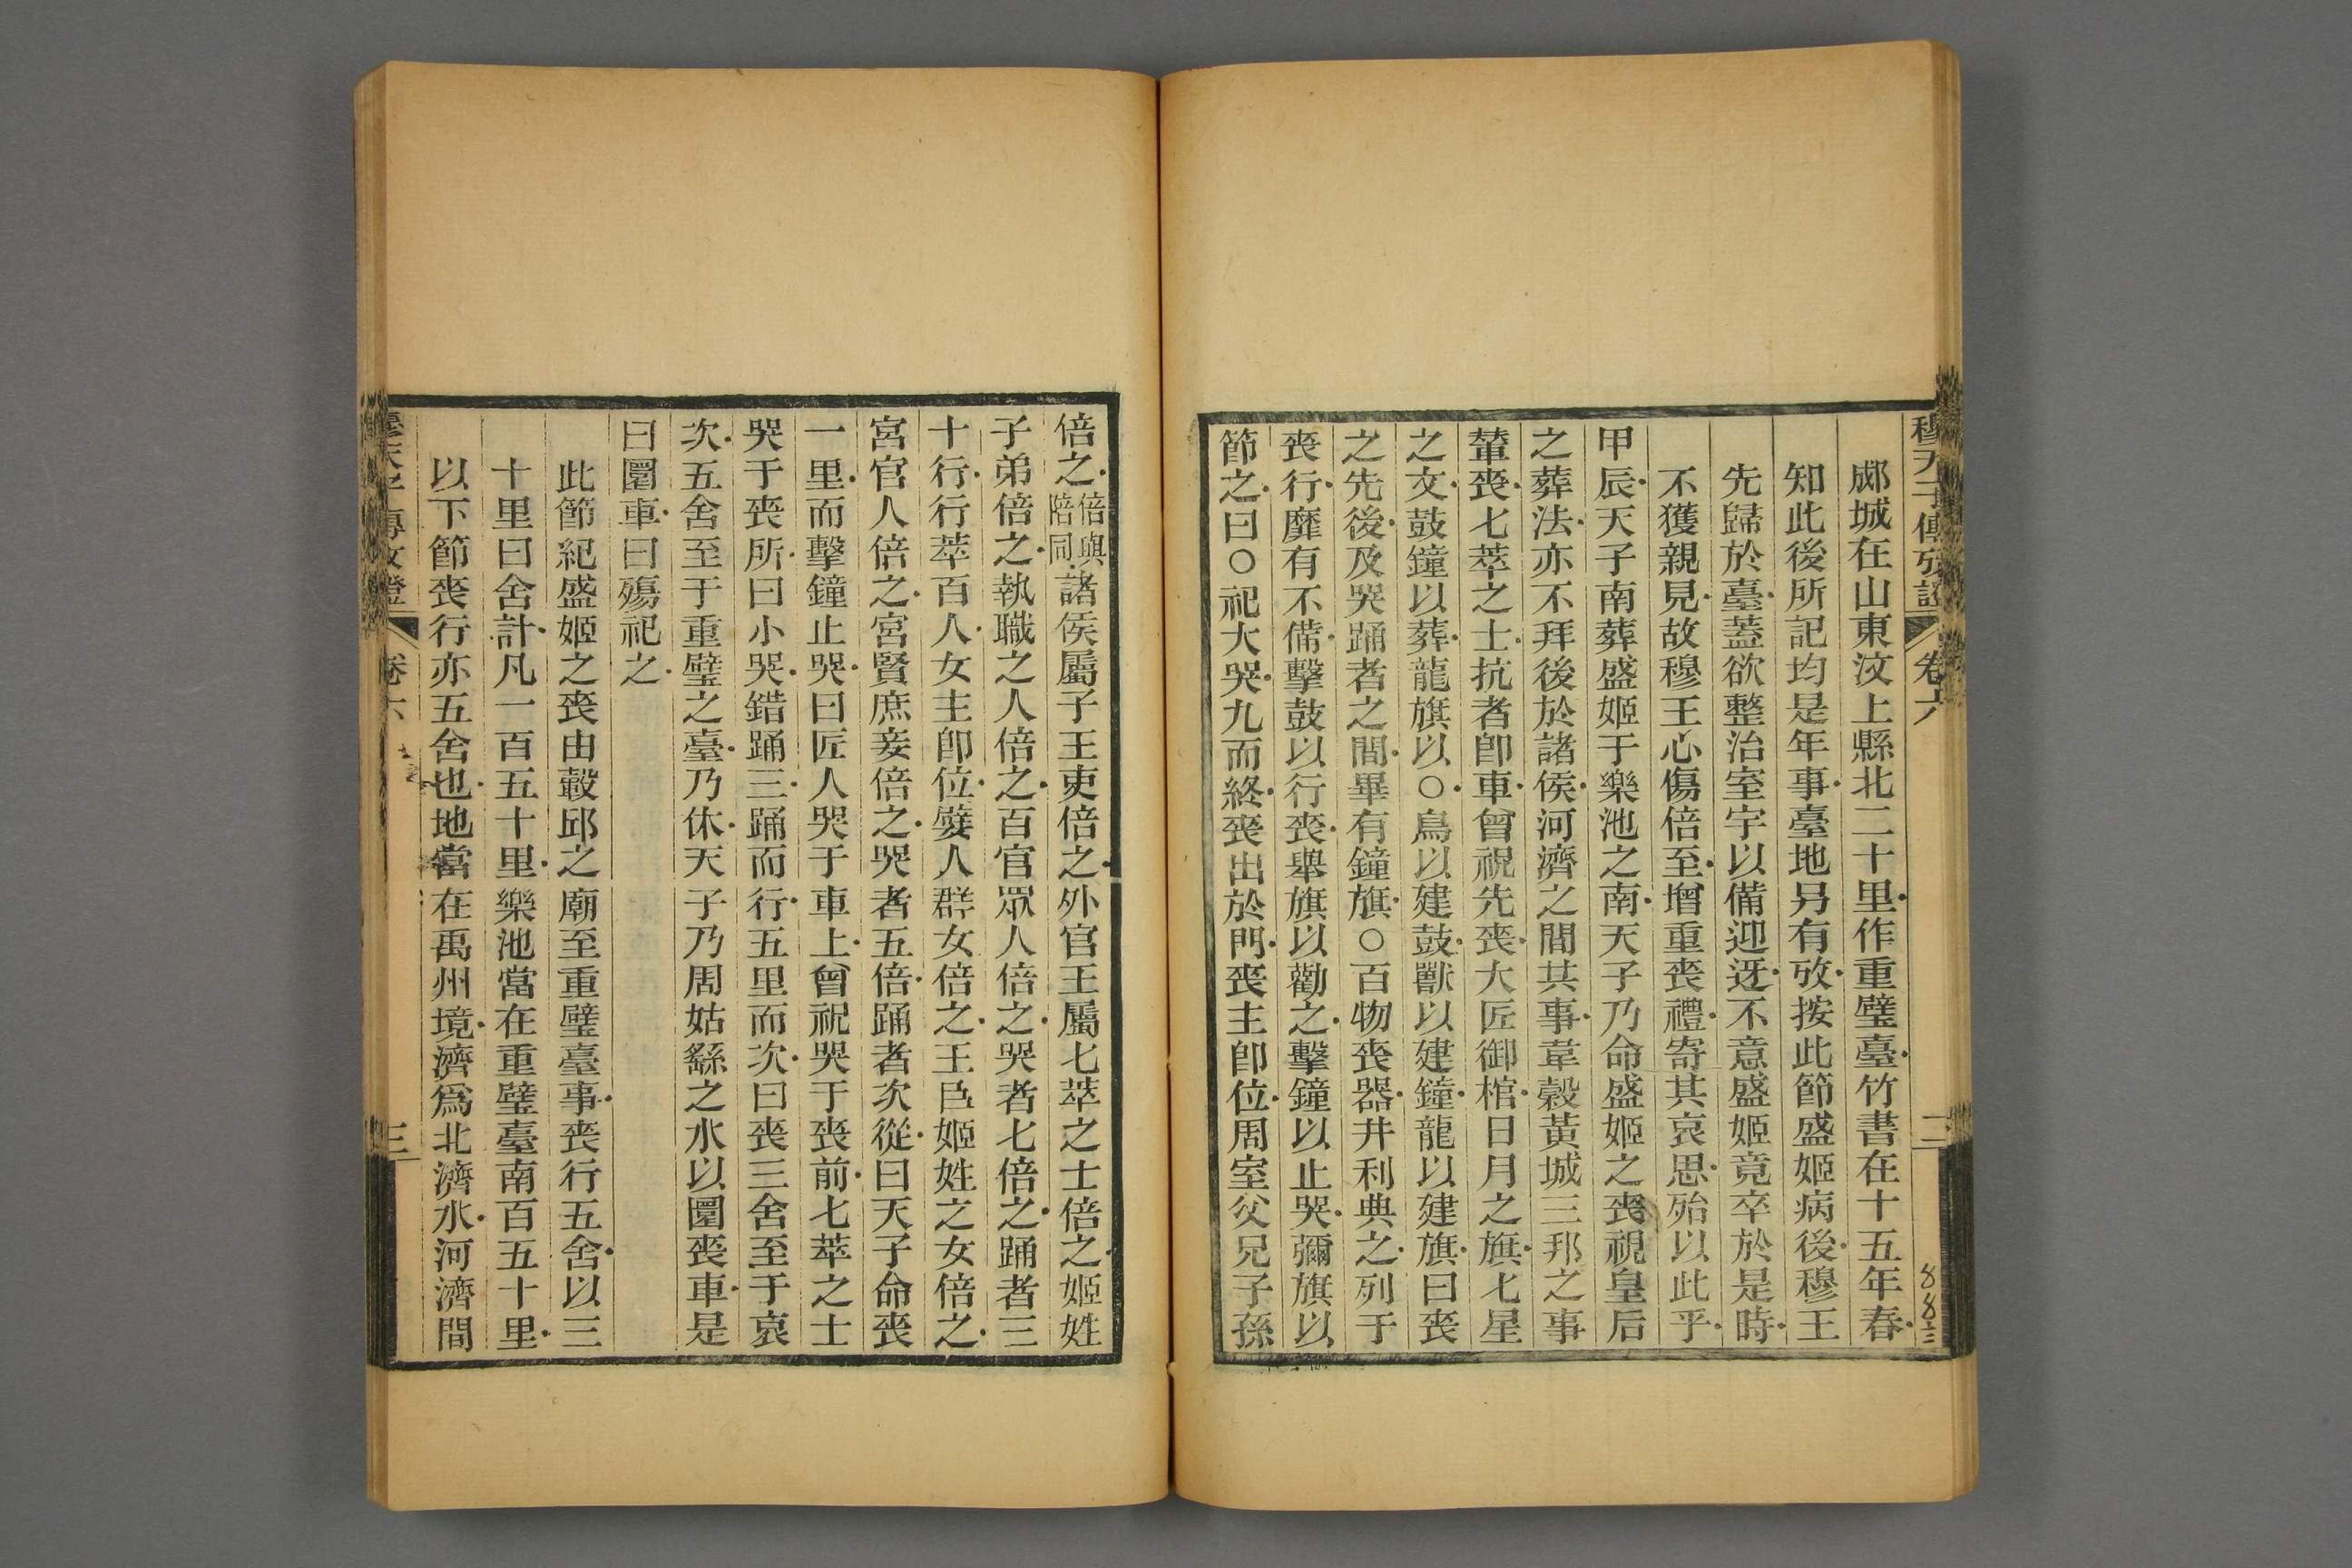 穆天子傳攷證 卷六 二
郕城在山東汶上縣北二十里作重璧臺竹書在十五年春
知此後所記均是年事臺地另有攷按此節盛姬病後穆王
先歸於臺蓋欲整治室宇以備迎迓不意盛姬竟卒於是時
不獲親見故穆王心傷倍至增重喪禮寄其哀思殆以此乎
甲辰天子南葬盛姬于樂池之南天子乃命盛姬之喪視皇后
之葬法亦不拜後於諸侯河濟之間共事韋穀黃城三邦之事
輦喪七萃之士抗者卽車曾祝先喪大匠御棺日月之旗七星
之文鼓鐘以葬龍旗以○鳥以建鼓獸以建鐘龍以建旗曰喪
之先後及哭踊者之間畢有鐘旗○百物喪器井利典之列于
喪行靡有不備擊鼓以行喪舉旗以勸之擊鐘以止哭彌旗以
節之曰○祀大哭九而終喪出於門喪主卽位周室父兄子孫
倍之倍與陪同諸侯屬子王吏倍之外官王屬七萃之士倍之姬姓
子弟倍之執職之人倍之百官眾人倍之哭者七倍之踊者三
十行行萃百人女主卽位嬖人群女倍之王臣姬姓之女倍之
宮官人倍之宮賢庶妾倍之哭者五倍踊者次從曰天子命喪
一里而擊鐘止哭曰匠人哭于車上曾祝哭于喪前七萃之士
哭于喪所曰小哭錯踊三踊而行五里而次曰喪三舍至于哀
次五舍至于重璧之臺乃休天子乃周姑繇之水以圜喪車是
曰圜車曰殤祀之
此節紀盛姬之喪由瑴邱之廟至重璧臺事喪行五舍以三
十里曰舍計凡一百五十里樂池當在重璧臺南百五十里
以下節喪行亦五舍也地當在禹州境濟爲北濟水河濟間
穆天子傳攷證 卷六 三
883